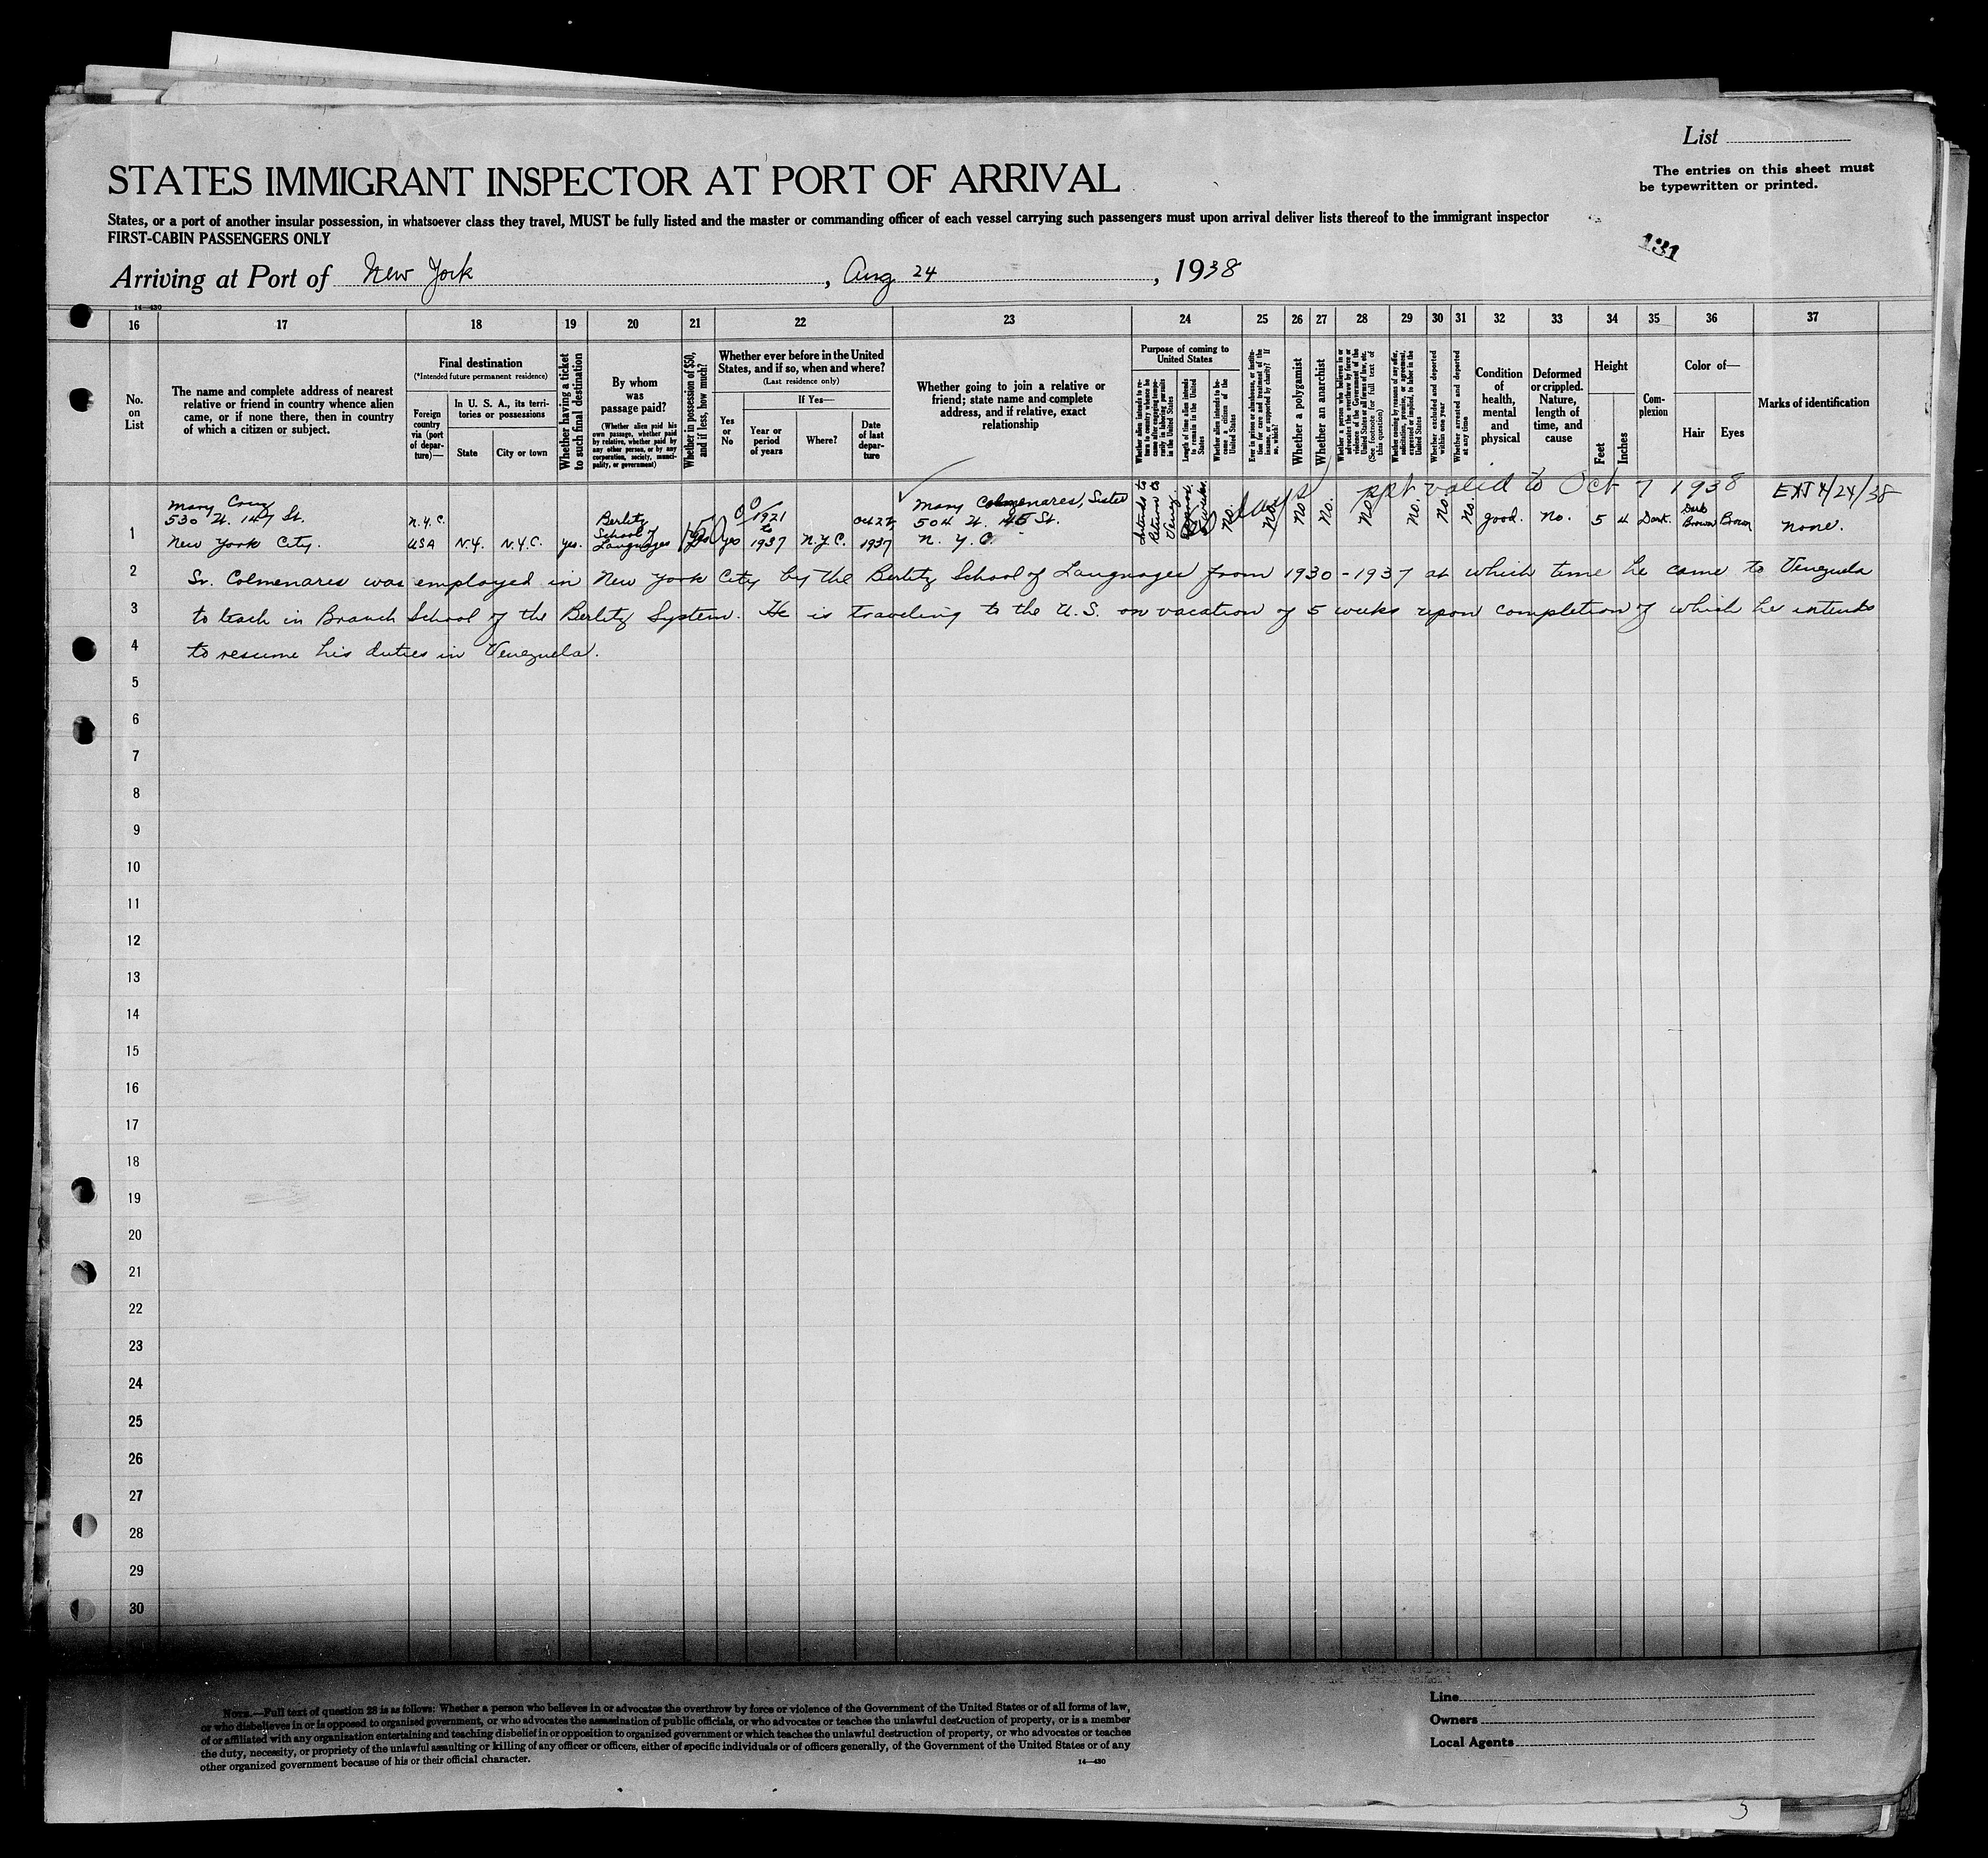 List
The entries on this sheet must
be typewritten or printed.
STATES IMMIGRANT INSPECTOR AT PORT OF ARRIVAL
States, or a port of another insular possession, in whatsoever class they travel, MUST be fully listed and the master or commanding officer of each vessel carrying such passengers must upon arrival deliver lists thereof to the immigrant inspector
FIRST-CABIN PASSENGERS ONLY
131
Arriving at Port of New York, Aug 24, 1938
14—430
16 17 18 19 20 21 22 23 24 25 26 27 28 29 30 31 32 33 34 35 36 37
No.
on
List
The name and complete address of nearest
relative or friend in country whence alien
came, or if none there, then in country
of which a citizen or subject.
Final destination
(*Intended future permanent residence)
Foreign
country
via (port
of depar-
ture)—
In U. S. A., its terri-
tories or possessions
State
City or town
Whether having a ticket
to such final destination
By whom
was
passage paid?
(Whether alien paid his
own passage, whether paid
by relative, whether paid by
any other person, or by any
corporation, society, munici-
pality, or government)
Whether in possession of $50,
and if less, how much?
Whether ever before in the United
States, and if so, when and where?
(Last residence only)
Yes
or
No
If Yes—
Year or
period
of years
Where?
Date
of last
depar-
ture
Whether going to join a relative or
friend; state name and complete
address, and if relative, exact
relationship
Purpose of coming to
United States
Whether alien intends to re-
turn to country whence he
came after engaging tempo-
rarily in laboring pursuits
in the United States
Length of time alien intends
to remain in the United
States
Whether alien intends to be-
come a citizen of the
United States
Ever in prison or almshouse, or institu-
tion for care and treatment of the
insane, or supported by charity? If
so, which?
Whether a polygamist
Whether an anarchist
Whether a person who believes in or
advocates the overthrow by force or
violence of the Government of the
United States or all forms of law, etc.
(See footnote for full text of
this question)
Whether coming by reasons of any offer,
solicitation, promise, or agreement,
expressed or implied, to labor in the
United States
Whether excluded and deported
within one year
Whether arrested and deported
at any time
Condition
of
health,
mental
and
physical
Deformed
or crippled.
Nature,
length of
time, and
cause
Height
Feet
Inches
Com-
plexion
Color of—
Hair
Eyes
Marks of identification
days ppt valid to Oct 7 1938
1
Mary Cruz
530 W. 147 St.
New York City.
N.Y.C.
USA
N.Y.
N.Y.C.
yes.
Berlitz
School of
Languages
yes
1921
to
1937
N.Y.C.
Oct 22
1937
Mary Colmenares, Sister
504 W. 145 St.
N. Y. C.
Intends to
Return to
Venez
No.
No.
No
No.
No.
No.
No.
No.
good.
No.
5
4
Dark.
Dark
Brown
Brown
none.
2 Sr. Colmenares was employed in New York City by the Berlitz School of Languages from 1930-1937 at which time he came to Venezuela
3 to teach in Branch School of the Berlitz System. He is traveling to the U.S. on vacation of 5 weeks upon completion of which he intends
4 to resume his duties in Venezuela.
5
6
7
8
9
10
11
12
13
14
15
16
17
18
19
20
21
22
23
24
25
26
27
28
29
30
NOTE.—Full text of question 28 is as follows: Whether a person who believes in or advocates the overthrow by force or violence of the Government of the United States or of all forms of law,
or who disbelieves in or is opposed to organized government, or who advocates the assassination of public officials, or who advocates or teaches the unlawful destruction of property, or is a member
of or affiliated with any organization entertaining and teaching disbelief in or opposition to organized government or which teaches the unlawful destruction of property, or who advocates or teaches
the duty, necessity, or propriety of the unlawful assaulting or killing of any officer or officers, either of specific individuals or of officers generally, of the Government of the United States or of any
other organized government because of his or their official character.
14—430
Line
Owners
Local Agents